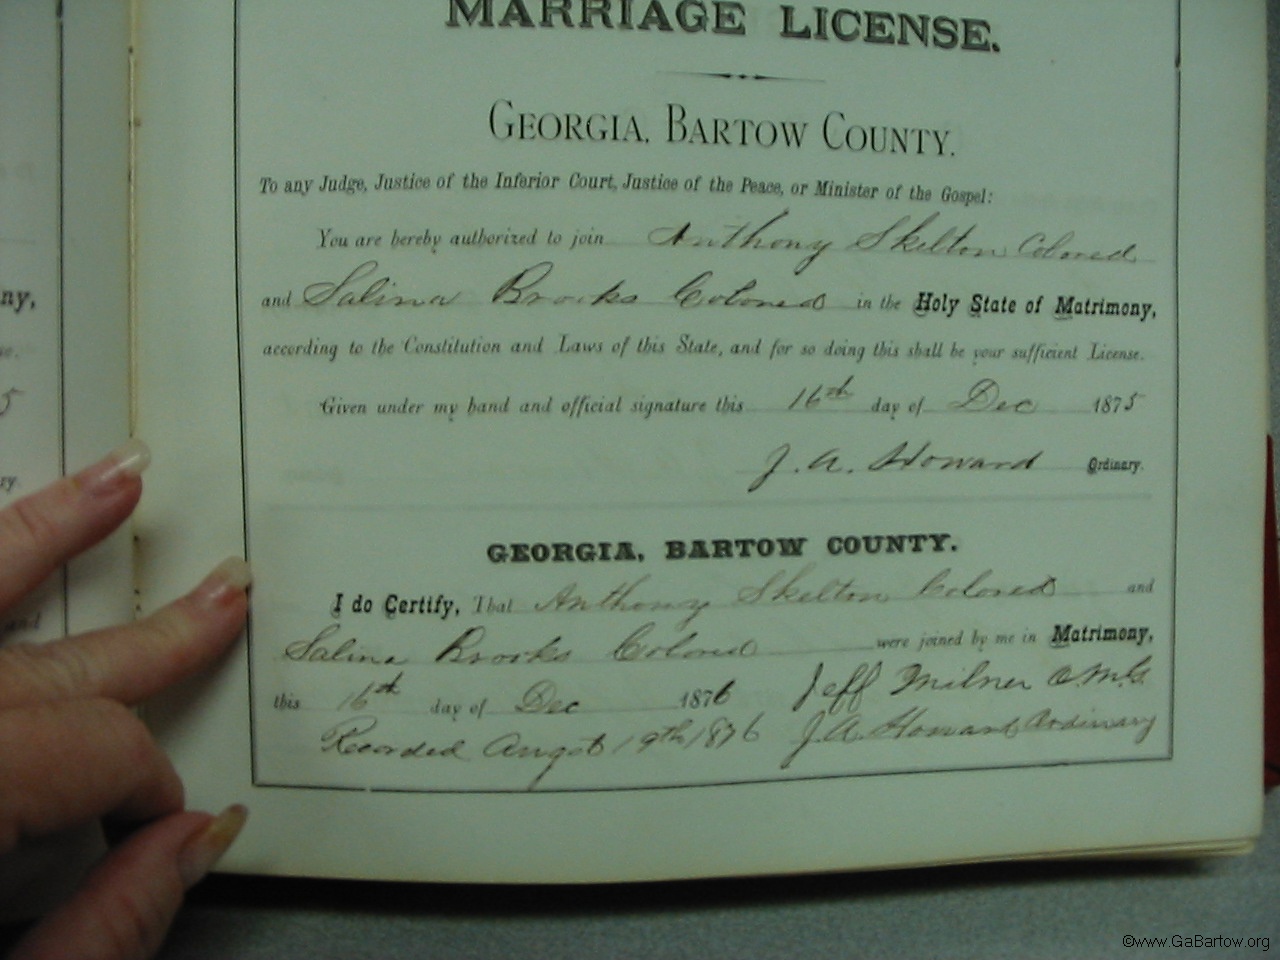 MARRIAGE LICENSE.
GEORGIA, BARTOW COUNTY.
To any Judge, Justice of the Inferior Court, Justice of the Peace, or Minister of the Gospel:
You are hereby authorized to join Anthony Skelton Colored
and Salina Brooks Colored in the Holy State of Matrimony,
according to the Constitution and Laws of this State, and for so doing this shall be your sufficient License.
Given under my hand and official signature this 16th day of Dec 1875
J. A. Howard Ordinary.
GEORGIA, BARTOW COUNTY.
I do Certify, That Anthony Skelton Colored and
Salina Brooks Colored were joined by me in Matrimony,
this 16th day of Dec 1876 Jeff Milner O.M.G.
Recorded Augst 19th 1876 J.A. Howard Ordinary
ny,
5
ry.
and
©www.GaBartow.org